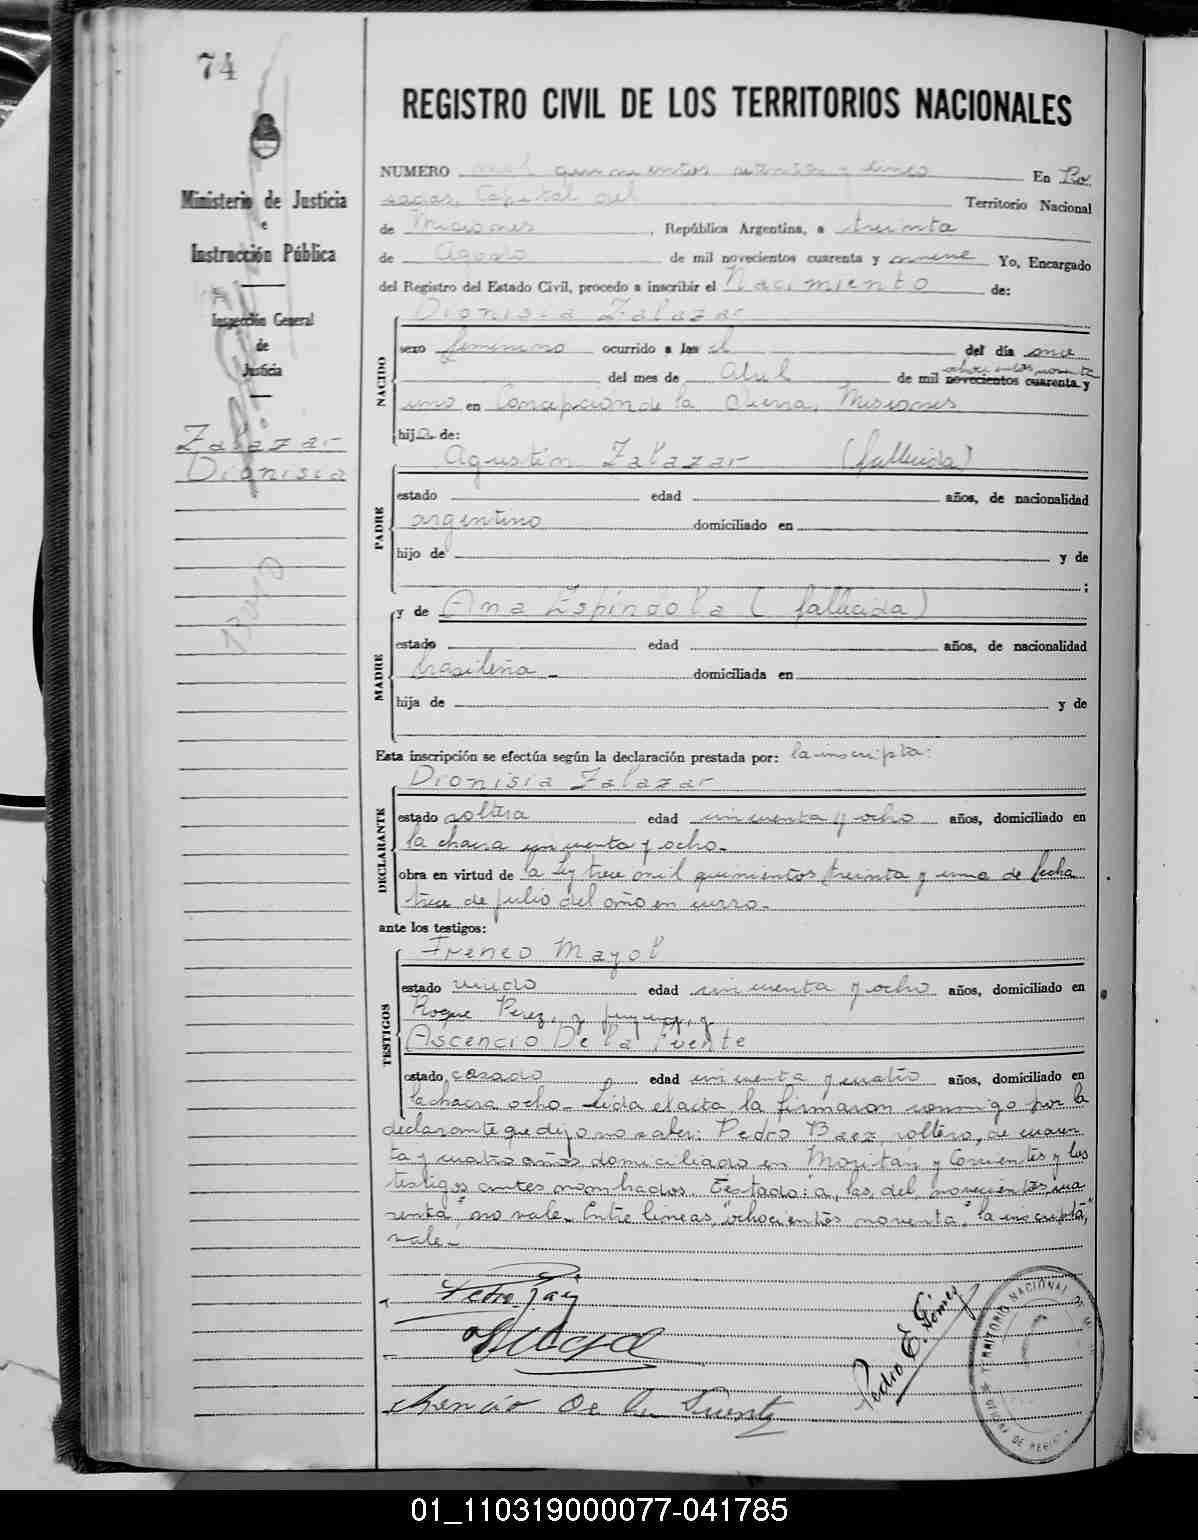 74
REGISTRO CIVIL DE LOS TERRITORIOS NACIONALES
Ministerio de Justicia
e
Instrucción Pública
Inspección General
de
Justicia
Zalazar
Dionisia
NUMERO mil quinientos setenta y cinco En Po
sadas, Capital del Territorio Nacional
de Misiones, República Argentina, a treinta
de Agosto de mil novecientos cuarenta y nueve Yo, Encargado
del Registro del Estado Civil, procedo a inscribir el Nacimiento de:
Dionisia Zalazar
NACIDO
sexo femenino ocurrido a las el del día once
ochocientos noventa
del mes de Abril de mil novecientos cuarenta y
uno en Concepción de la Sierra, Misiones
hija de:
Agustín Zalazar (fallecido)
PADRE
estado edad años, de nacionalidad
argentino domiciliado en
hijo de y de
;
y de Ana Espíndola (fallecida)
MADRE
estado edad años, de nacionalidad
brasileña - domiciliada en
hija de y de
Esta inscripción se efectúa según la declaración prestada por: la inscripta:
Dionisia Zalazar
DECLARANTE
estado soltera edad cincuenta y ocho años, domiciliado en
la chacra cincuenta y ocho.
obra en virtud de la Ley trece mil quinientos treinta y uno de fecha
trece de julio del año en curso.
ante los testigos:
Ireneo Mayol
TESTIGOS
estado viudo edad cincuenta y ocho años, domiciliado en
Roque Perez, y
Ascencio De la Fuente
estado casado edad cincuenta y cuatro años, domiciliado en
la chacra ocho. Leida el acta, la firmaron conmigo por la
declarante que dijo no saber: Pedro Baez, soltero, de cuaren
ta y cuatro años domiciliado en y Corrientes y los
testigos antes nombrados. Testado: "a, las, del, novecientos, cua
renta", no vale. Entre lineas, "ochocientos noventa", "la inscripta,"
vale.
Ascencio De la Fuente
Pedro E. Gómez
TERRITORIO NACIONAL DE
OFICINA DE REGISTRO
01_110319000077-041785